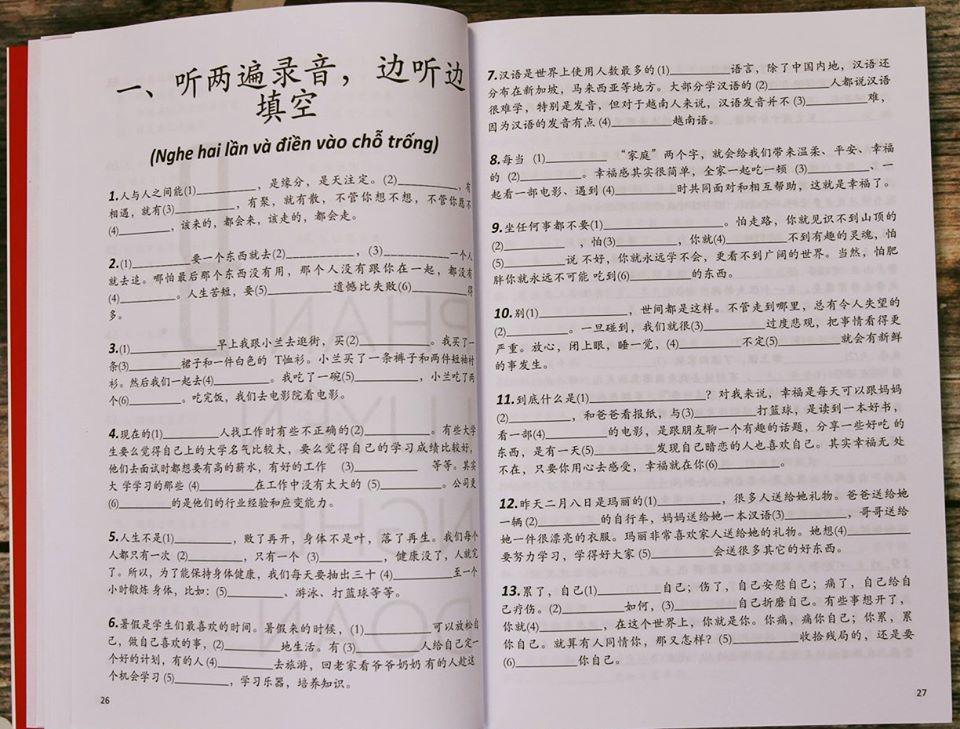 一、听两遍录音，边听边
填空
(Nghe hai lần và điền vào chỗ trống)
1.人与人之间能(1)__________，是缘分，是天注定。(2)__________，有
相遇，就有(3)__________，有聚，就有散，不管你想不想，不管你愿不
(4)________，该来的，都会来，该走的，都会走。
2.(1)__________要一个东西就去(2)__________，(3)__________一个人
就去追。哪怕最后那个东西没有用，那个人没有跟你在一起，都没有
(4)________。人生苦短，要(5)________遗憾比失败(6)________得
多。
3.(1)__________早上我跟小兰去逛街，买(2)__________。我买了一
条(3)________裙子和一件白色的 T恤衫。小兰买了一条裤子和两件短袖衬
衫。然后我们一起去(4)________。我吃了一碗(5)________，小兰吃了两
个(6)________。吃完饭，我们去电影院看电影。
4.现在的(1)________人找工作时有些不正确的(2)________。有些大学
生要么觉得自己上的大学名气比较大，要么觉得自己的学习成绩比较好，
他们去面试时都想要有高的薪水，有好的工作 (3)________ 等等。其实
大 学学习的那些 (4)________在工作中没有太大的 (5)________。公司更
(6)________的是他们的行业经验和应变能力。
5.人生不是(1)________，败了再开，身体不是叶，落了再生。我们每个
人都只有一次 (2)________，只有一个 (3)________，健康没了，人就完
了。所以，为了能保持身体健康，我们每天要抽出三十 (4)________至一个
小时锻炼 身体，比如：(5)________、游泳、打篮球等等。
6.暑假是学生们最喜欢的时间。暑假来的时候，(1)________ 可以放松自
己，做自己喜欢的事，(2)________地生活。有 (3)________人给自己定一
个好的计划，有的人 (4)________去旅游，回老家看爷爷奶奶 有的人趁这
个机会学习 (5)________，学习乐器，培养知识。
26
7.汉语是世界上使用人数最多的 (1)________语言，除了中国内地，汉语 还
分布在新加坡，马来西亚等地方。大部分学汉语的 (2)________人都说汉语
很难学，特别是发音，但对于越南人来说，汉语发音并不 (3)________难，
因为汉语的发音有点 (4)________越南语。
8.每当 (1)________ “家庭”两个字，就会给我们带来温柔、平安、幸福
的 (2)________。幸福感其实很简单，全家一起吃一顿 (3)________、一
起看一部电影、遇到 (4)________时共同面对和相互帮助，这就是幸福了。
9.坐任何事都不要(1)__________。怕走路，你就见识不到山顶的
(2)________，怕(3)________，你就(4)________不到有趣的灵魂，怕
(5)________说 不好，你就永远学不会，更看不到广阔的世界。当然，怕肥
胖你就永远不可能 吃到(6)________的东西。
10.别(1)________，世间都是这样。不管走到哪里，总有令人失望的
(2)________。一旦碰到，我们就很(3)________过度悲观，把事情看得更
严重。放心，闭上眼，睡一觉，(4)________不定(5)________就会有新鲜
的事发生。
11.到底什么是(1)__________？对我来说，幸福是每天可以跟妈妈
(2)________，和爸爸看报纸，与(3)________打篮球，是读到一本好书，
看一部(4)________的电影，是跟朋友聊一个有趣的话题，分享一些好吃 的
东西，是有一天(5)________发现自己暗恋的人也喜欢自己。其实幸福无 处
不在，只要你用心去感受，幸福就在你(6)________。
12.昨天二月八日是玛丽的(1)________，很多人送给她礼物。爸爸送给她
一辆(2)________的自行车，妈妈送给她一本汉语(3)________，哥哥送给
她一件很漂亮的衣服。玛丽非常喜欢家人送给她的礼物。她想(4)________
要努力学习，学得好大家 (5)________会送很多其它的好东西。
13.累了，自己(1)________自己；伤了，自己安慰自己；痛了，自己给自
己疗伤。(2)________如何，(3)________自己折磨自己。有些事想开了，
你就(4)________，在这个世界上，你就是你。你痛，痛你自己；你累，累
你自己。就算有人同情你，那又怎样？(5)________收拾残局的，还是要
(6)________你自己。
27